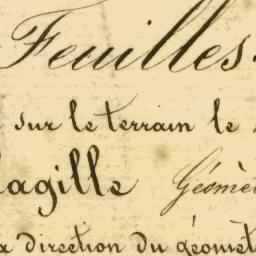 Feuilles.
sur le terrain le
agille Géomè
direction du géomèt